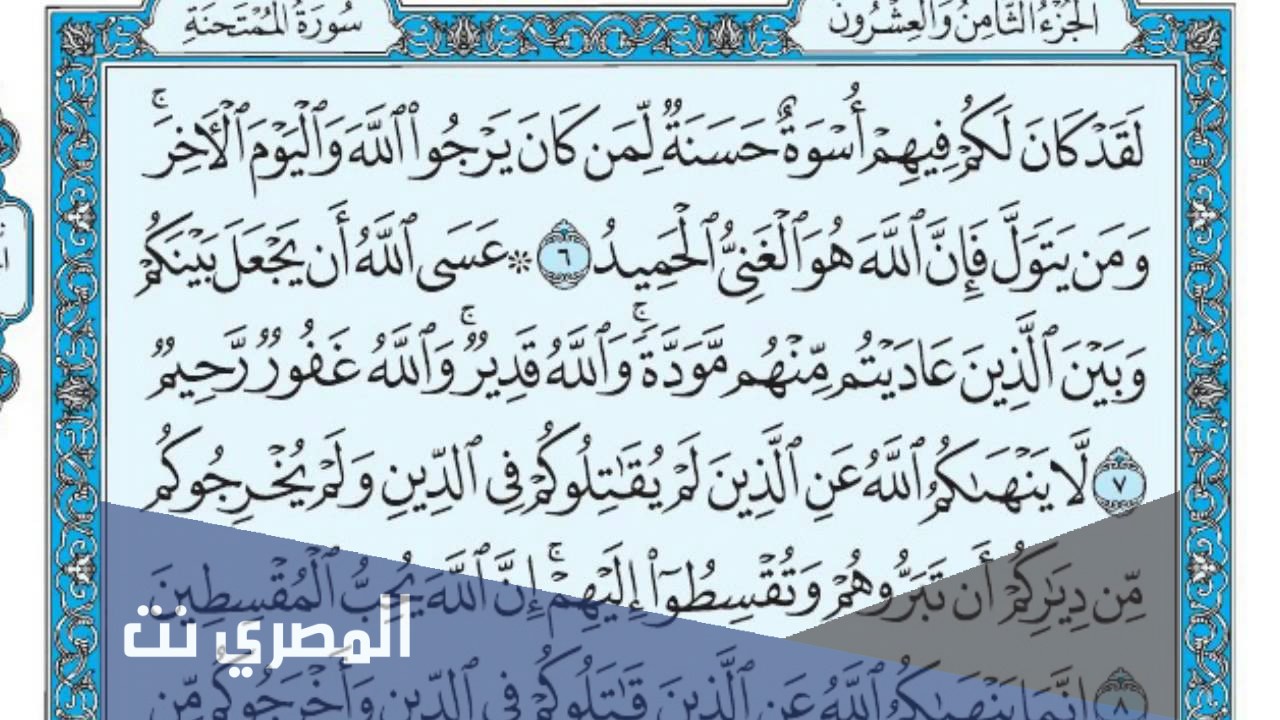 الجزء الثامن والعشرون
سورة الممتحنة
لَقَدْ كَانَ لَكُمْ فِيهِمْ أُسْوَةٌ حَسَنَةٌ لِّمَن كَانَ يَرْجُوا۟ ٱللَّهَ وَٱلْيَوْمَ ٱلْـَٔاخِرَ ۚ
وَمَن يَتَوَلَّ فَإِنَّ ٱللَّهَ هُوَ ٱلْغَنِىُّ ٱلْحَمِيدُ ٦ ۞ عَسَى ٱللَّهُ أَن يَجْعَلَ بَيْنَكُمْ
وَبَيْنَ ٱلَّذِينَ عَادَيْتُم مِّنْهُم مَّوَدَّةً ۚ وَٱللَّهُ قَدِيرٌ ۚ وَٱللَّهُ غَفُورٌ رَّحِيمٌ
٧ لَّا يَنْهَىٰكُمُ ٱللَّهُ عَنِ ٱلَّذِينَ لَمْ يُقَٰتِلُوكُمْ فِى ٱلدِّينِ وَلَمْ يُخْرِجُوكُم
مِّن دِيَٰرِكُمْ أَن تَبَرُّوهُمْ وَتُقْسِطُوٓا۟ إِلَيْهِمْ ۚ إِنَّ ٱللَّهَ يُحِبُّ ٱلْمُقْسِطِينَ
المصري نت
٨ إِنَّمَا يَنْهَىٰكُمُ ٱللَّهُ عَنِ ٱلَّذِينَ قَٰتَلُوكُمْ فِى ٱلدِّينِ وَأَخْرَجُوكُم مِّن